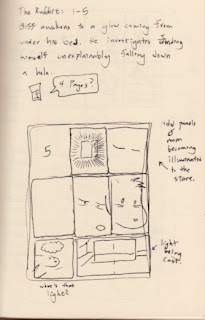 The Rabbit: 1-5
awakens to a glow coming from
under his bed. He investigates finding
himself unexplainably falling down
a hole.
4 Pages?
5
panels
of
room
becoming
illuminated
to the
stare.
light
being
cast.
what's that
light?